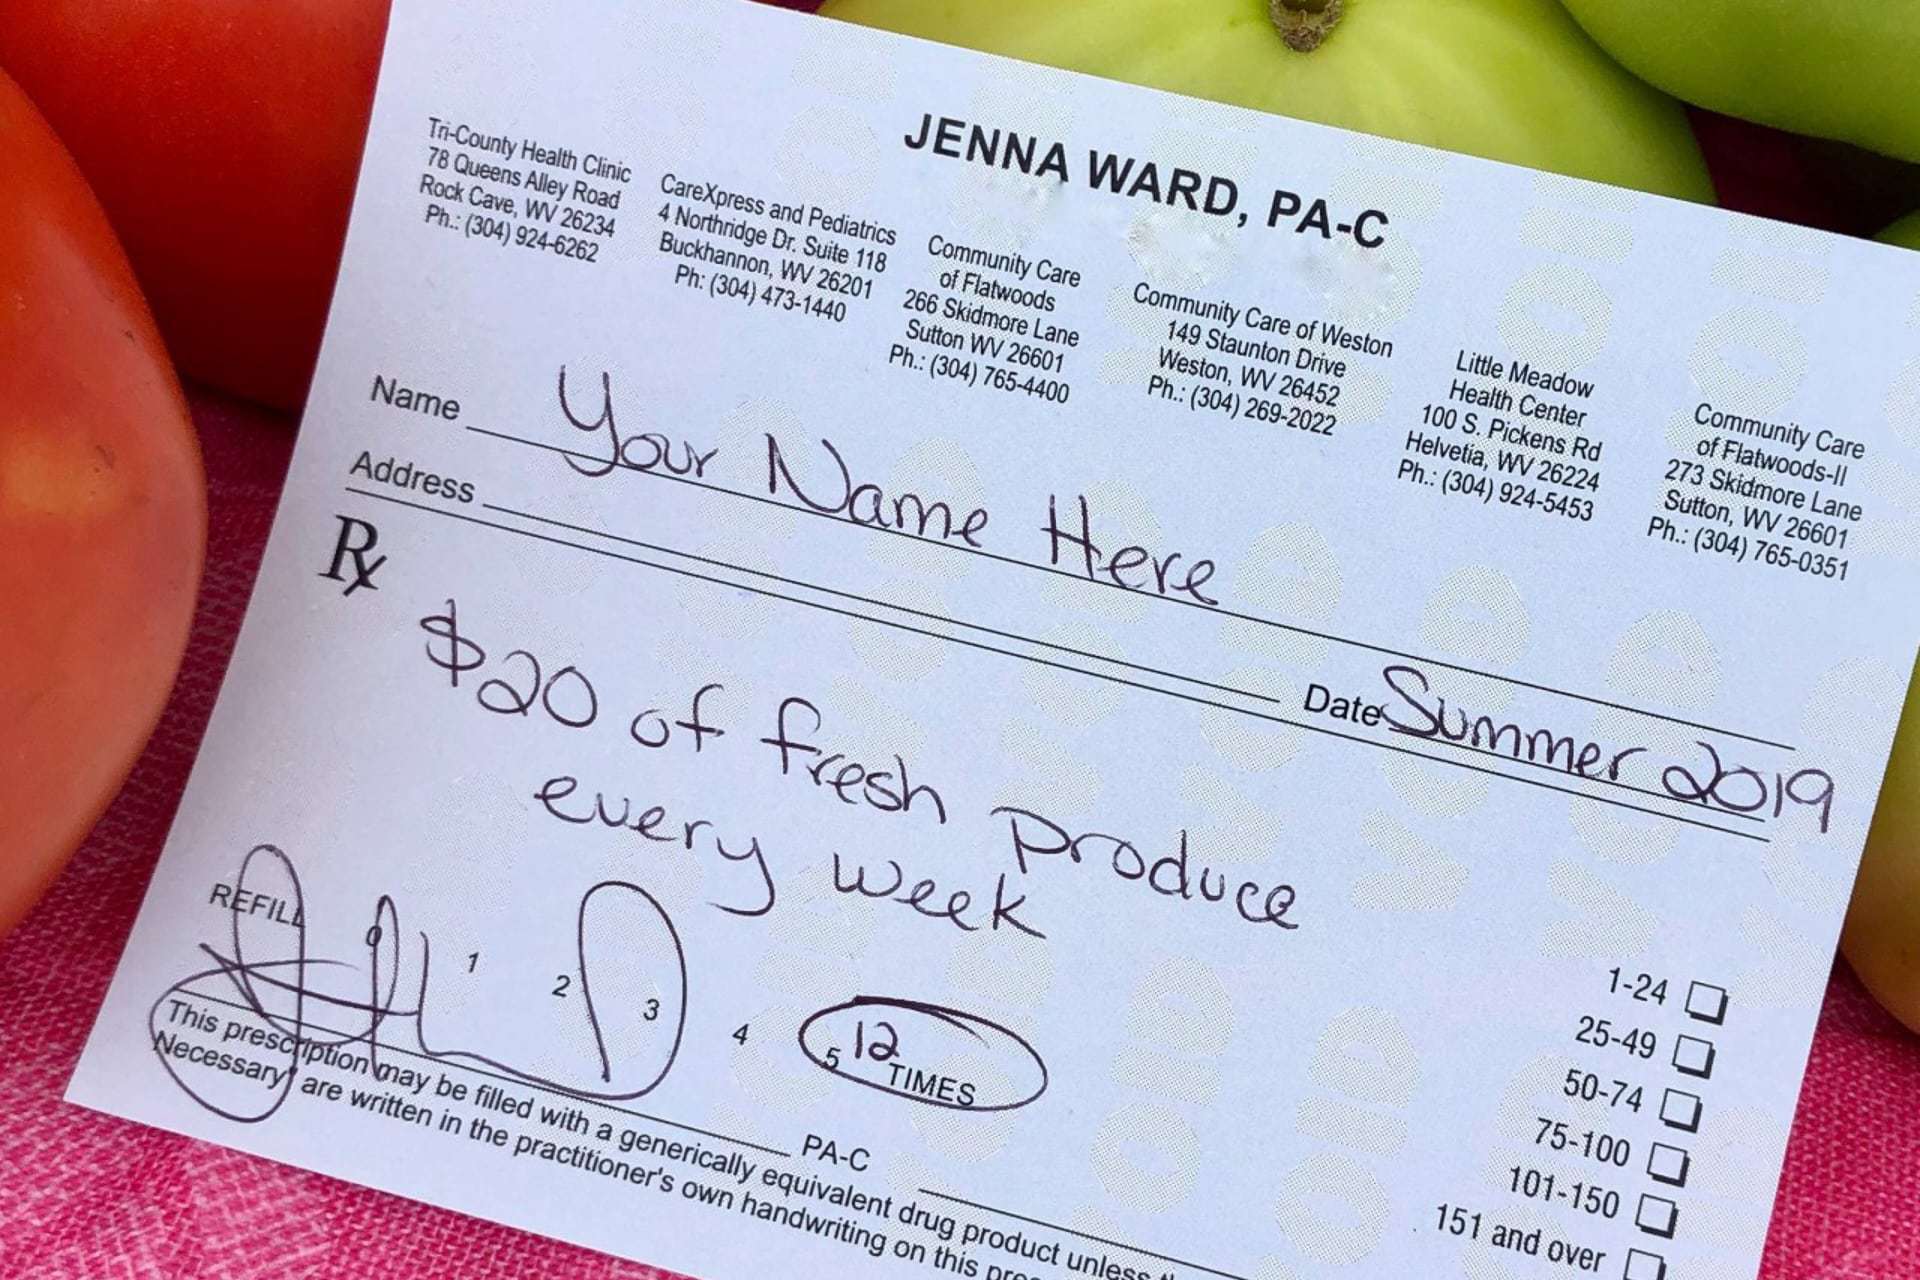 JENNA WARD, PA-C
Tri-County Health Clinic
78 Queens Alley Road
Rock Cave, WV 26234
Ph.: (304) 924-6262
CareXpress and Pediatrics
4 Northridge Dr. Suite 118
Buckhannon, WV 26201
Ph: (304) 473-1440
Community Care
of Flatwoods
266 Skidmore Lane
Sutton WV 26601
Ph.: (304) 765-4400
Community Care of Weston
149 Staunton Drive
Weston, WV 26452
Ph.: (304) 269-2022
Little Meadow
Health Center
100 S. Pickens Rd
Helvetia, WV 26224
Ph.: (304) 924-5453
Community Care
of Flatwoods-II
273 Skidmore Lane
Sutton, WV 26601
Ph.: (304) 765-0351
Name Your Name Here
Address Date Summer 2019
Rx
$20 of fresh produce
every week
REFILL 0 1 2 3 4 5 12 TIMES
1-24
25-49
50-74
75-100
101-150
151 and over
PA-C
This prescription may be filled with a generically equivalent drug product unless
Necessary' are written in the practitioner's own handwriting on this